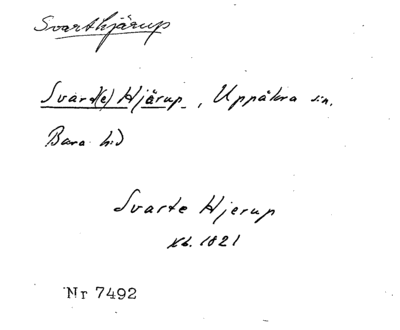 Svarthjärup
Svart(e) Hjärup, Uppåkra sn.
Bara hd
Svarte Hjerup
Kb. 1821
Nr 7492